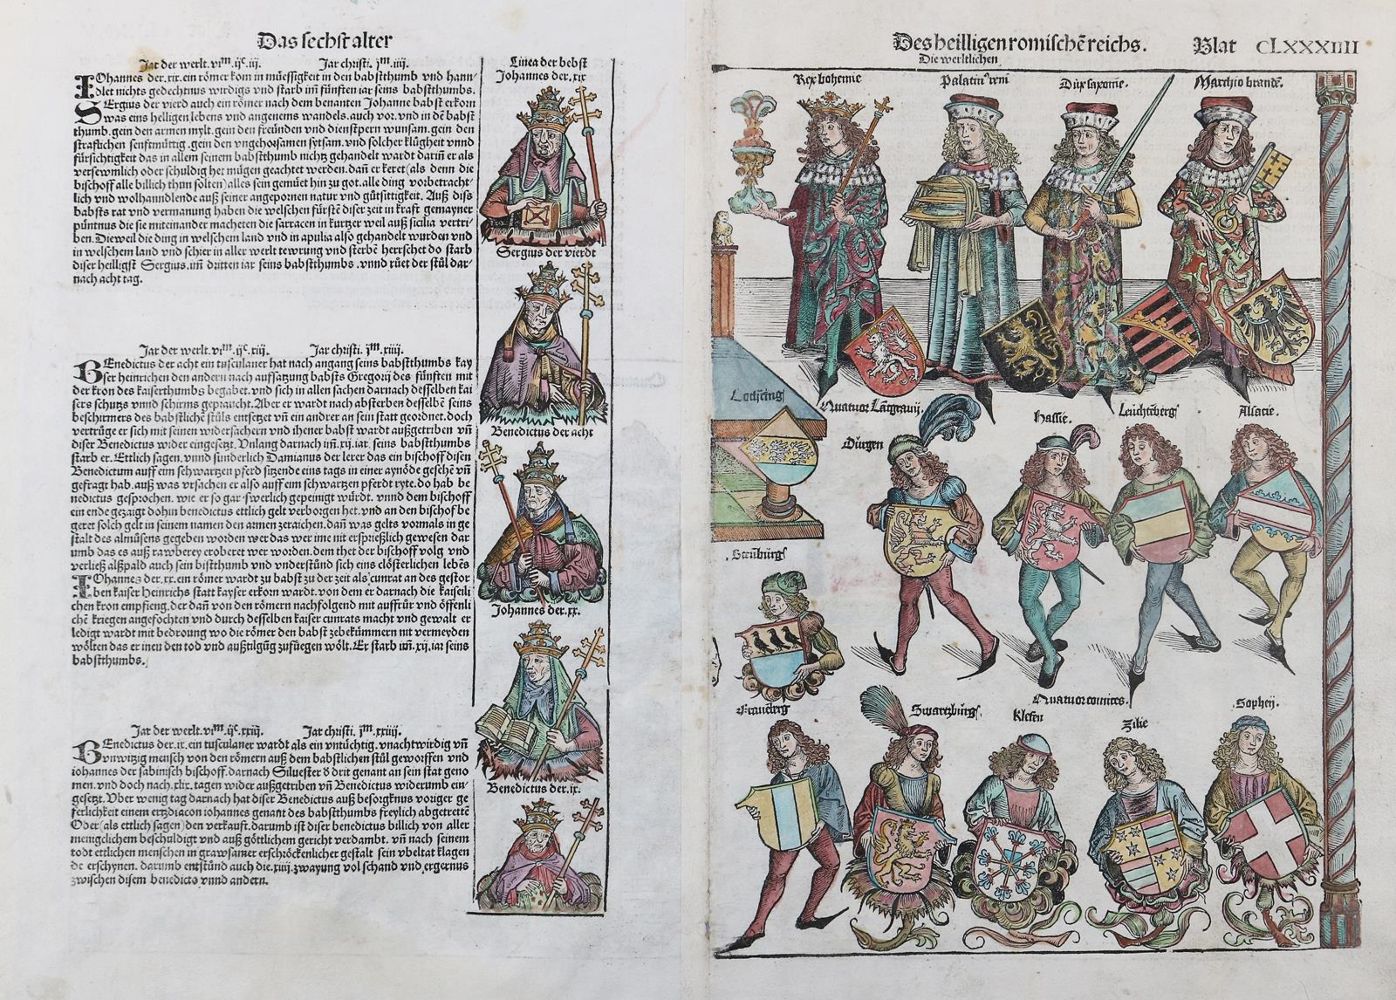 Das sechst alter
Jar der werlt. vjᵐ.ijᶜ.iij. Jar christi. jᵐ.iiij.
Johannes der.xix.ein römer kom in müessigkeit in den babstthumb vnd hann
dlet nichts gedechtnus wirdigs vnd starb im fünften iar seins babstthumbs.
Sergius der vierd auch ein römer nach dem benanten Johanne babst erkorn
was eins heiligen lebens vnd angenems wandels.auch vor.vnd in dē babst
thumb.gein den armen mylt.gein den freünden vnd dienstpern wunsam.gein den
straflichen senftmüttig.gein den vngehorsamen setsam.vnd solcher klügheit vnnd
fürsichtigkeit das in allem seinem babstthumb nichtz gehandelt wardt darin er als
versewmlich oder schuldig het mügen geachtet werden.dañ er keret (als denn die
bischoff alle billich thun solten) alles sein gemüet hin zu got.alle ding vorbetracht-
lich vnd wolhanndlende auß seiner angepornen natur vnd gütsittigkeit. Auß diss
babsts rat vnd vermanung haben die welschen fürstē diser zeit in kraft gemayner
püntnus die sie miteinander macheten die sarracen in kurtzer weil auß sicilia vertri-
ben.Dieweil die ding in welschem land vnd in apulia also gehandelt wurden vnd
in welschem land vnd schier in aller werlt tewrung vnd sterbē herrschet do starb
diser heiligst Sergius.im dritten iar seins babstthumbs.vnnd rüet der stůl dar-
nach acht tag.
Jar der werlt.vjᵐ.ijᶜ.xiij. Jar christi. jᵐ.xiiij.
Benedictus der acht ein tusculaner hat nach angang seins babstthumbs kay
ser heinrichen den andern nach aufsatzung babsts Gregorij des fünften mit
der kron des kaiserthumbs begabet.vnd sich in allen sachen darnach desselben kai
sers schutzs vnnd schirms gepraucht.Aber er wardt nach absterben desselbē seins
beschirmers des babstlichē stůls entsetzet vñ ein andrer an sein statt geordnet.doch
vertrůge er sich mit seinen widersachern vnd ihener babst wardt außgetriben vñ
diser Benedictus wider eingesetzt.Vnlang darnach im.xij.iar.seins babstthumbs
starb er.Ettlich sagen.vnnd sunderlich Damianus der lerer das ein bischoff disen
Benedictum auff eim schwartzen pferd sitzende eins tags in einer aynöde gesehē vñ
gefragt hab.auß was vrsachen er also auff eim schwartzen pferdt ryte.do hab be
nedictus gesprochen.wie er so gar swerlich gepeinigt würdt.vnnd dem bischoff
ein ende gezaigt dohin benedictus ettlich gelt verborgen het.vnd an den bischof be
geret solch gelt in seinem namen den armen zeraichen.dañ was gelts vormals in ge
stalt des almůsens gegeben worden wer das wer ime nit ersprießlich gewesen dar
umb das es auß rawberey eroberet wer worden.dem thet der bischoff volg vnd
verließ alßpald auch sein bistthumb vnd vnderstünd sich eins clösterlichen lebēs
Johannes der.xx.ein römer wardt zu babst zu der zeit als cunrat an des gestor
ben kaiser heinrichs statt kayser erkorn wardt.von dem er darnach die kaiserli
chen kron empfieng.der dañ von den römern nachfolgend mit auffrůr vnd öffenli
chē kriegen angefochten vnd durch desselben kaiser cunrats macht vnd gewalt er
ledigt wardt mit bedroung wo die römer den babst zebekümmern nit vermeyden
wölten das er inen den tod vnd außtilgüg zufüegen wölt.Er starb im.xij.iar seins
babstthumbs.
Jar der werlt.vjᵐ.ijᶜ.xxiij. Jar christi. jᵐ.xxiiij.
Benedictus der.ix.ein tusculaner wardt als ein vntüchtig.vnachtwirdig vñ
vnwitzig mensch von den römern auß dem babstlichen stůl geworffen vnd
iohannes der sabinisch bischoff.darnach Siluester ď drit genant an sein stat geno
men.vnd doch nach.xlix.tagen wider außgetriben vñ Benedictus widerumb ein
gesetzt.Vber wenig tag darnach hat diser Benedictus auß besorgknus voriger ge
ferlichkeit einem ertzdiacon iohannes genant des babstthumbs freylich abgetrettē
Oder (als ettlich sagen) den verkauft.darumb ist diser benedictus billich von aller
menigclichem beschuldigt vnd auß göttlichem gericht verdambt. vñ nach seinem
todt ettlichen menschen in grawsamer erschröckenlicher gestalt sein vbeltat klagen
de erschynen. darumb entstünd auch die.xiij.zwayung vol schand vnd ergernus
zwischen disem benedicto vnnd andern.
Linea der bebst
Johannes der.xix
Sergius der vierdt
Benedictus der acht
Johannes der.xx.
Benedictus der.ix.
Des heilligen romischē reichs. Blat CLXXXIIII
Die werltlichen
Rex bohemie
Palatinꝰ reni
Dux saxonie.
Marchio brandē.
Lothring
Quatuor Lātgrauij.
Dürgen
Hassie.
Leuchtēberg
Alsacie.
Straßburg
Quatuor comites.
Swartzburg
Klefen
Zilie
Sophey.